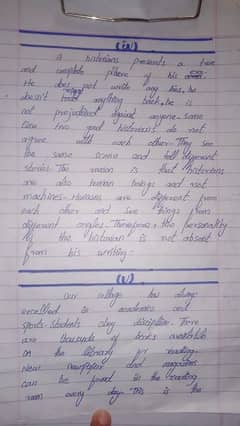 (ix)
A historians presents a true
and complete picture of his
He does not write any lies, he
doesn't anything back, he is
not prejudiced against anyone. some
time two good historians do not
agree with each other. They see
the same scene and tell different
stories. The reason is that historians
are also human beings and not
machines. Humans are different from
each other and see things from
different angles. Therefore, the personality
of the historian is not absent
from his writing.
(x)
our college has always
excelled in academics and
sports. students obey discipline. There
are thousands of books available
in the library for reading.
New newspaper and magazines
can be found in the reading
room every day. This is the